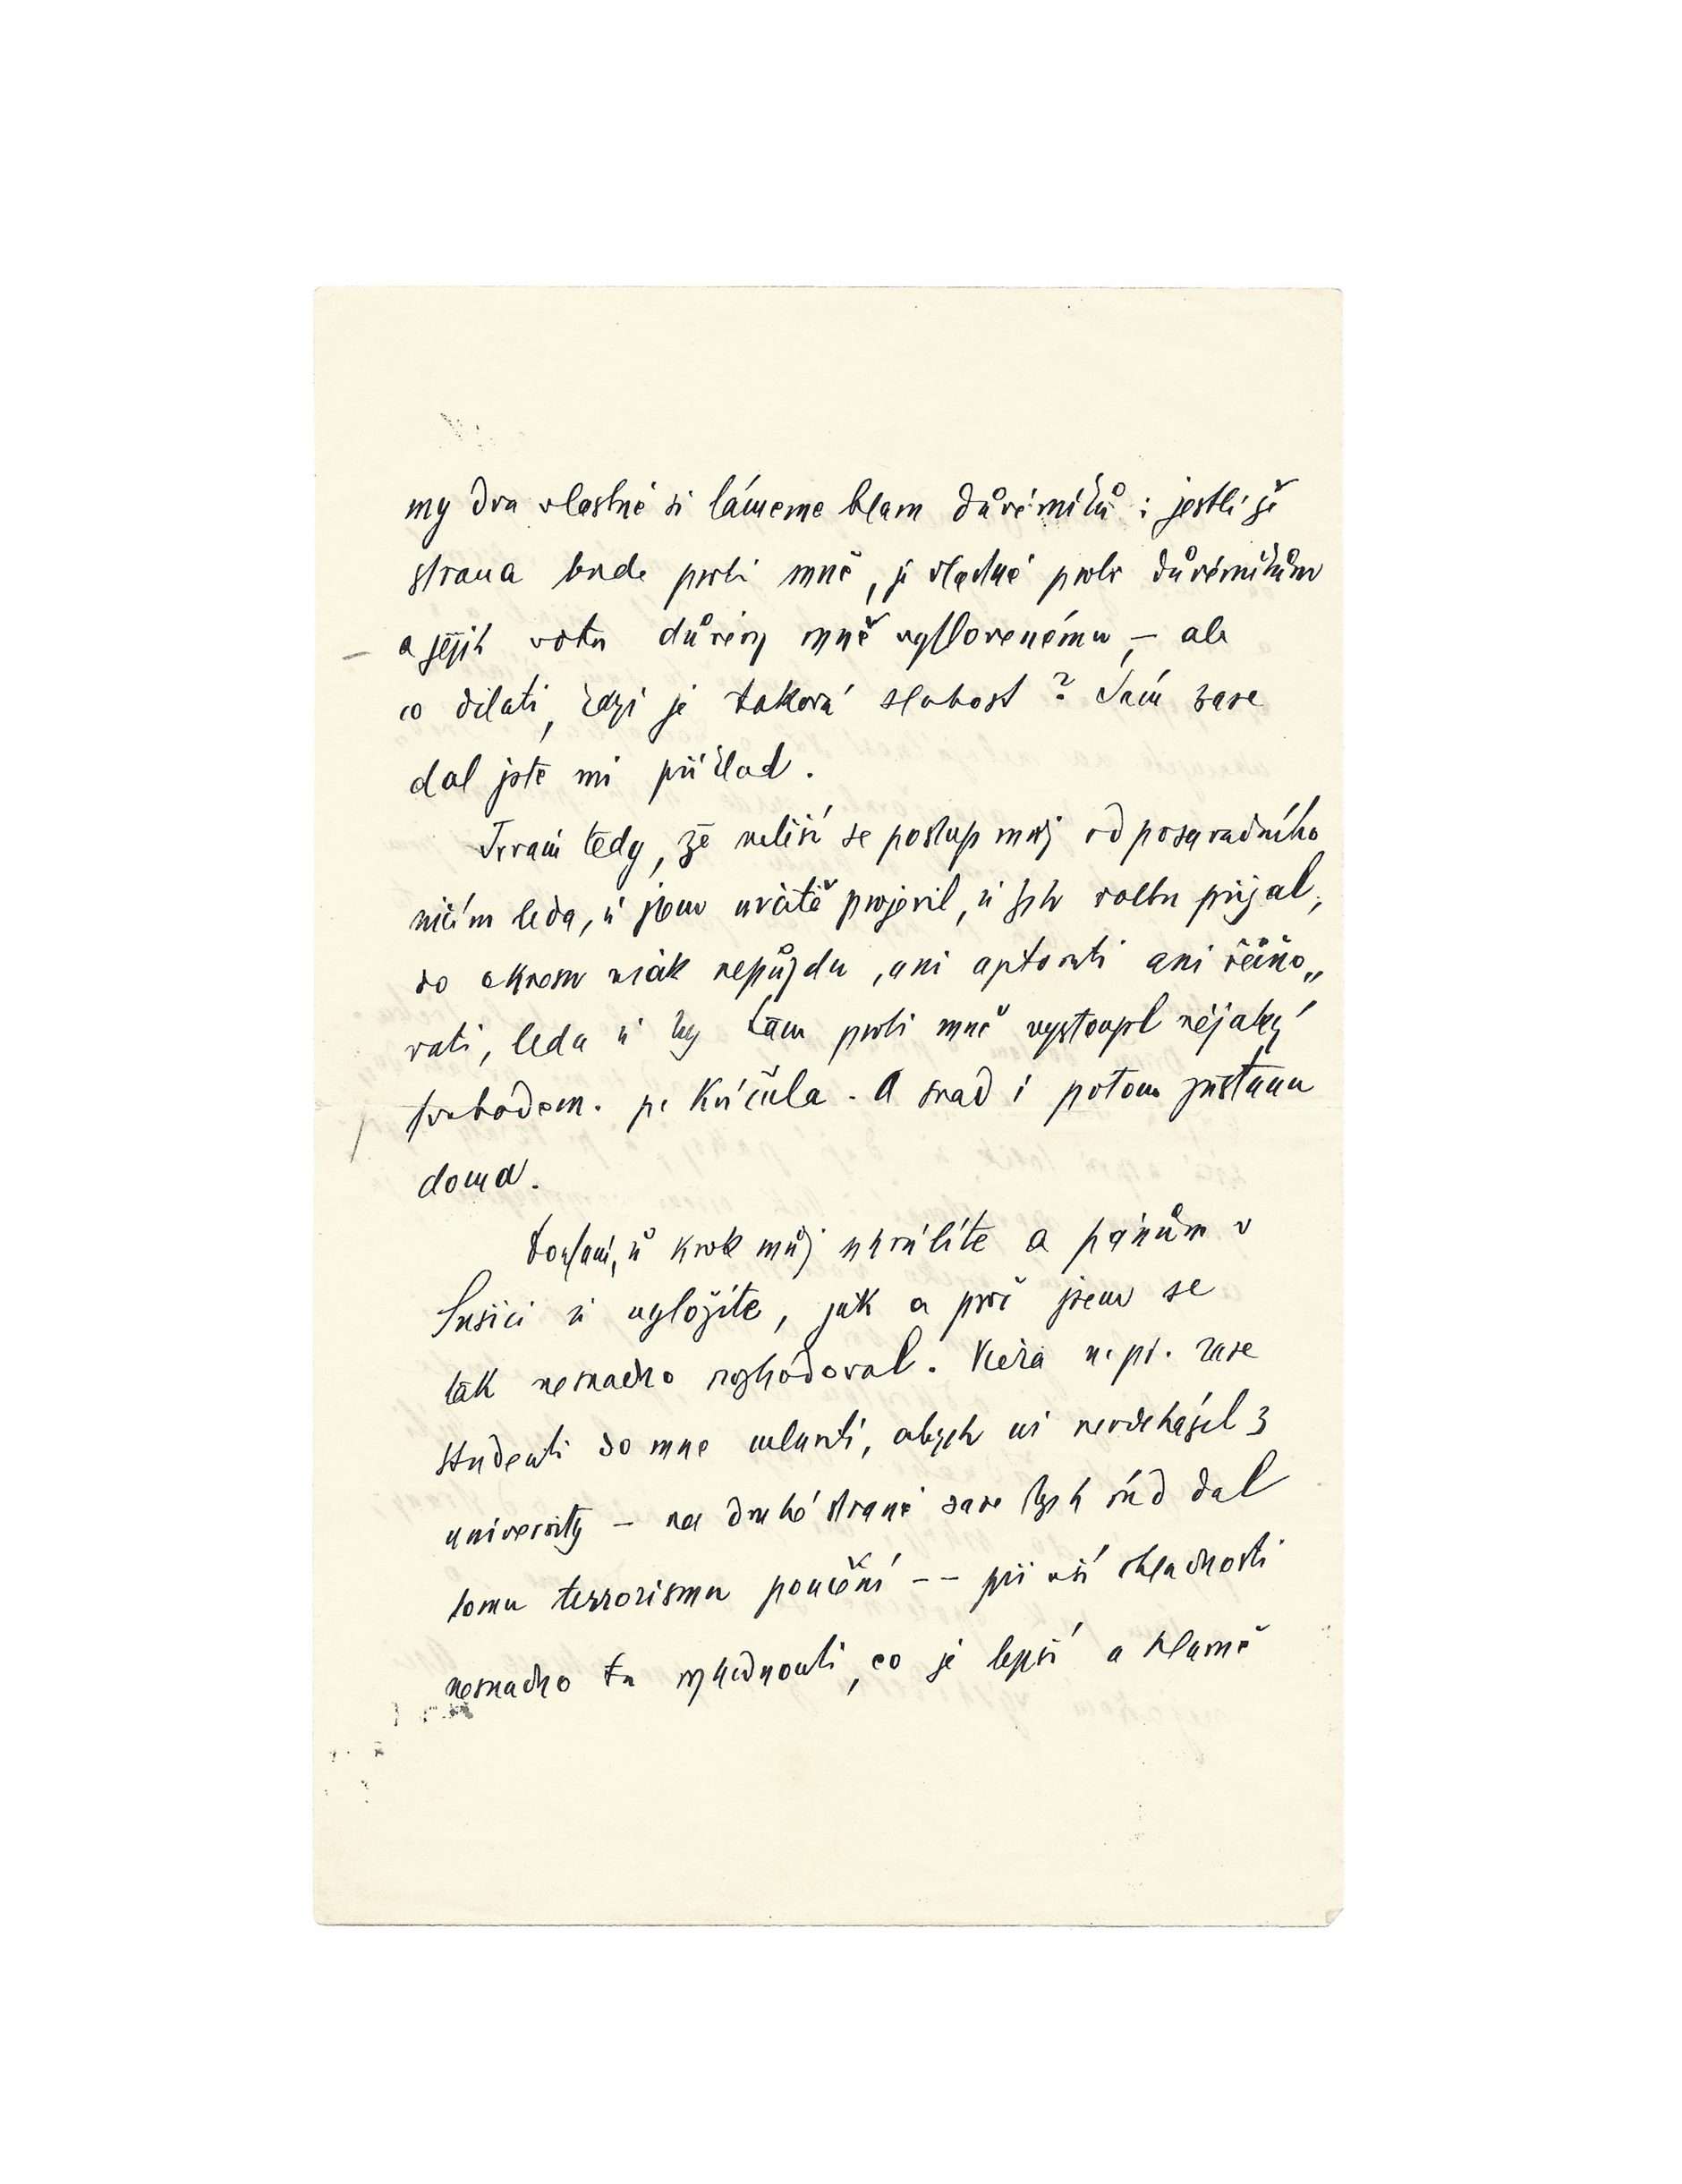 my dva vlastně si lámeme hlavu důvěrníků: jestliže
strana bude proti mně, je vlastně proti důvěrníkům
a jejich votu důvěry mně vyslovenému, – ale
co dělati, když je taková slabost? Sám zase
dal jste mi příklad.
Trvám tedy, že neliší se postup můj od posavadního
ničím leda, že jsem určitě projevil, že bych volbu přijal;
do okresu však nepůjdu, ani agitovati ani řečňo„
vati, leda že by tam proti mně vystoupil nějaký
svobodom. p. Kříčula. A snad i potom zůstanu
doma.
Doufám, že krok můj schválíte a pánům v
Sušici že vyložíte, jak a proč jsem se
tak nesnadno rozhodoval. Včera n. př. zase
studenti do mne mluvili, abych už neodcházel z
university – na druhé straně zase bych rád dal
tomu terrorismu poučení –– při vší chladnosti
nesnadno tu rozhodnouti, co je lepší a hlavně